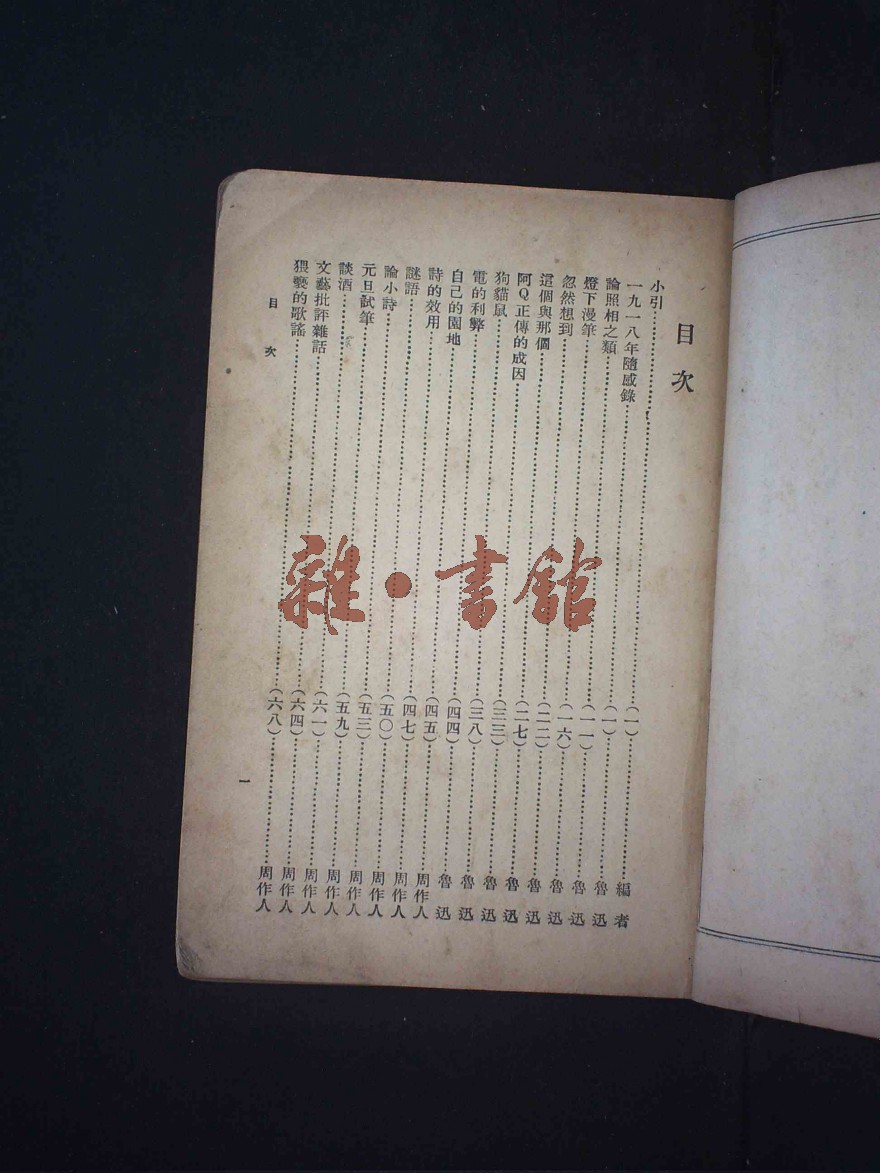 目次
小引……(一)……編者
一九一八年隨感錄……(一)……魯迅
論照相之類……(一一)……魯迅
燈下漫筆……(一六)……魯迅
忽然想到……(二二)……魯迅
這個與那個……(二七)……魯迅
阿Q正傳的成因……(三三)……魯迅
狗貓鼠……(三八)……魯迅
電的利弊……(四四)……魯迅
自己的園地……(四五)……周作人
詩的效用……(四七)……周作人
謎語……(五〇)……周作人
論小詩……(五三)……周作人
元旦試筆……(五九)……周作人
談酒……(六一)……周作人
文藝批評雜話……(六四)……周作人
猥褻的歌謠……(六八)……周作人
目次
一
雜·書館